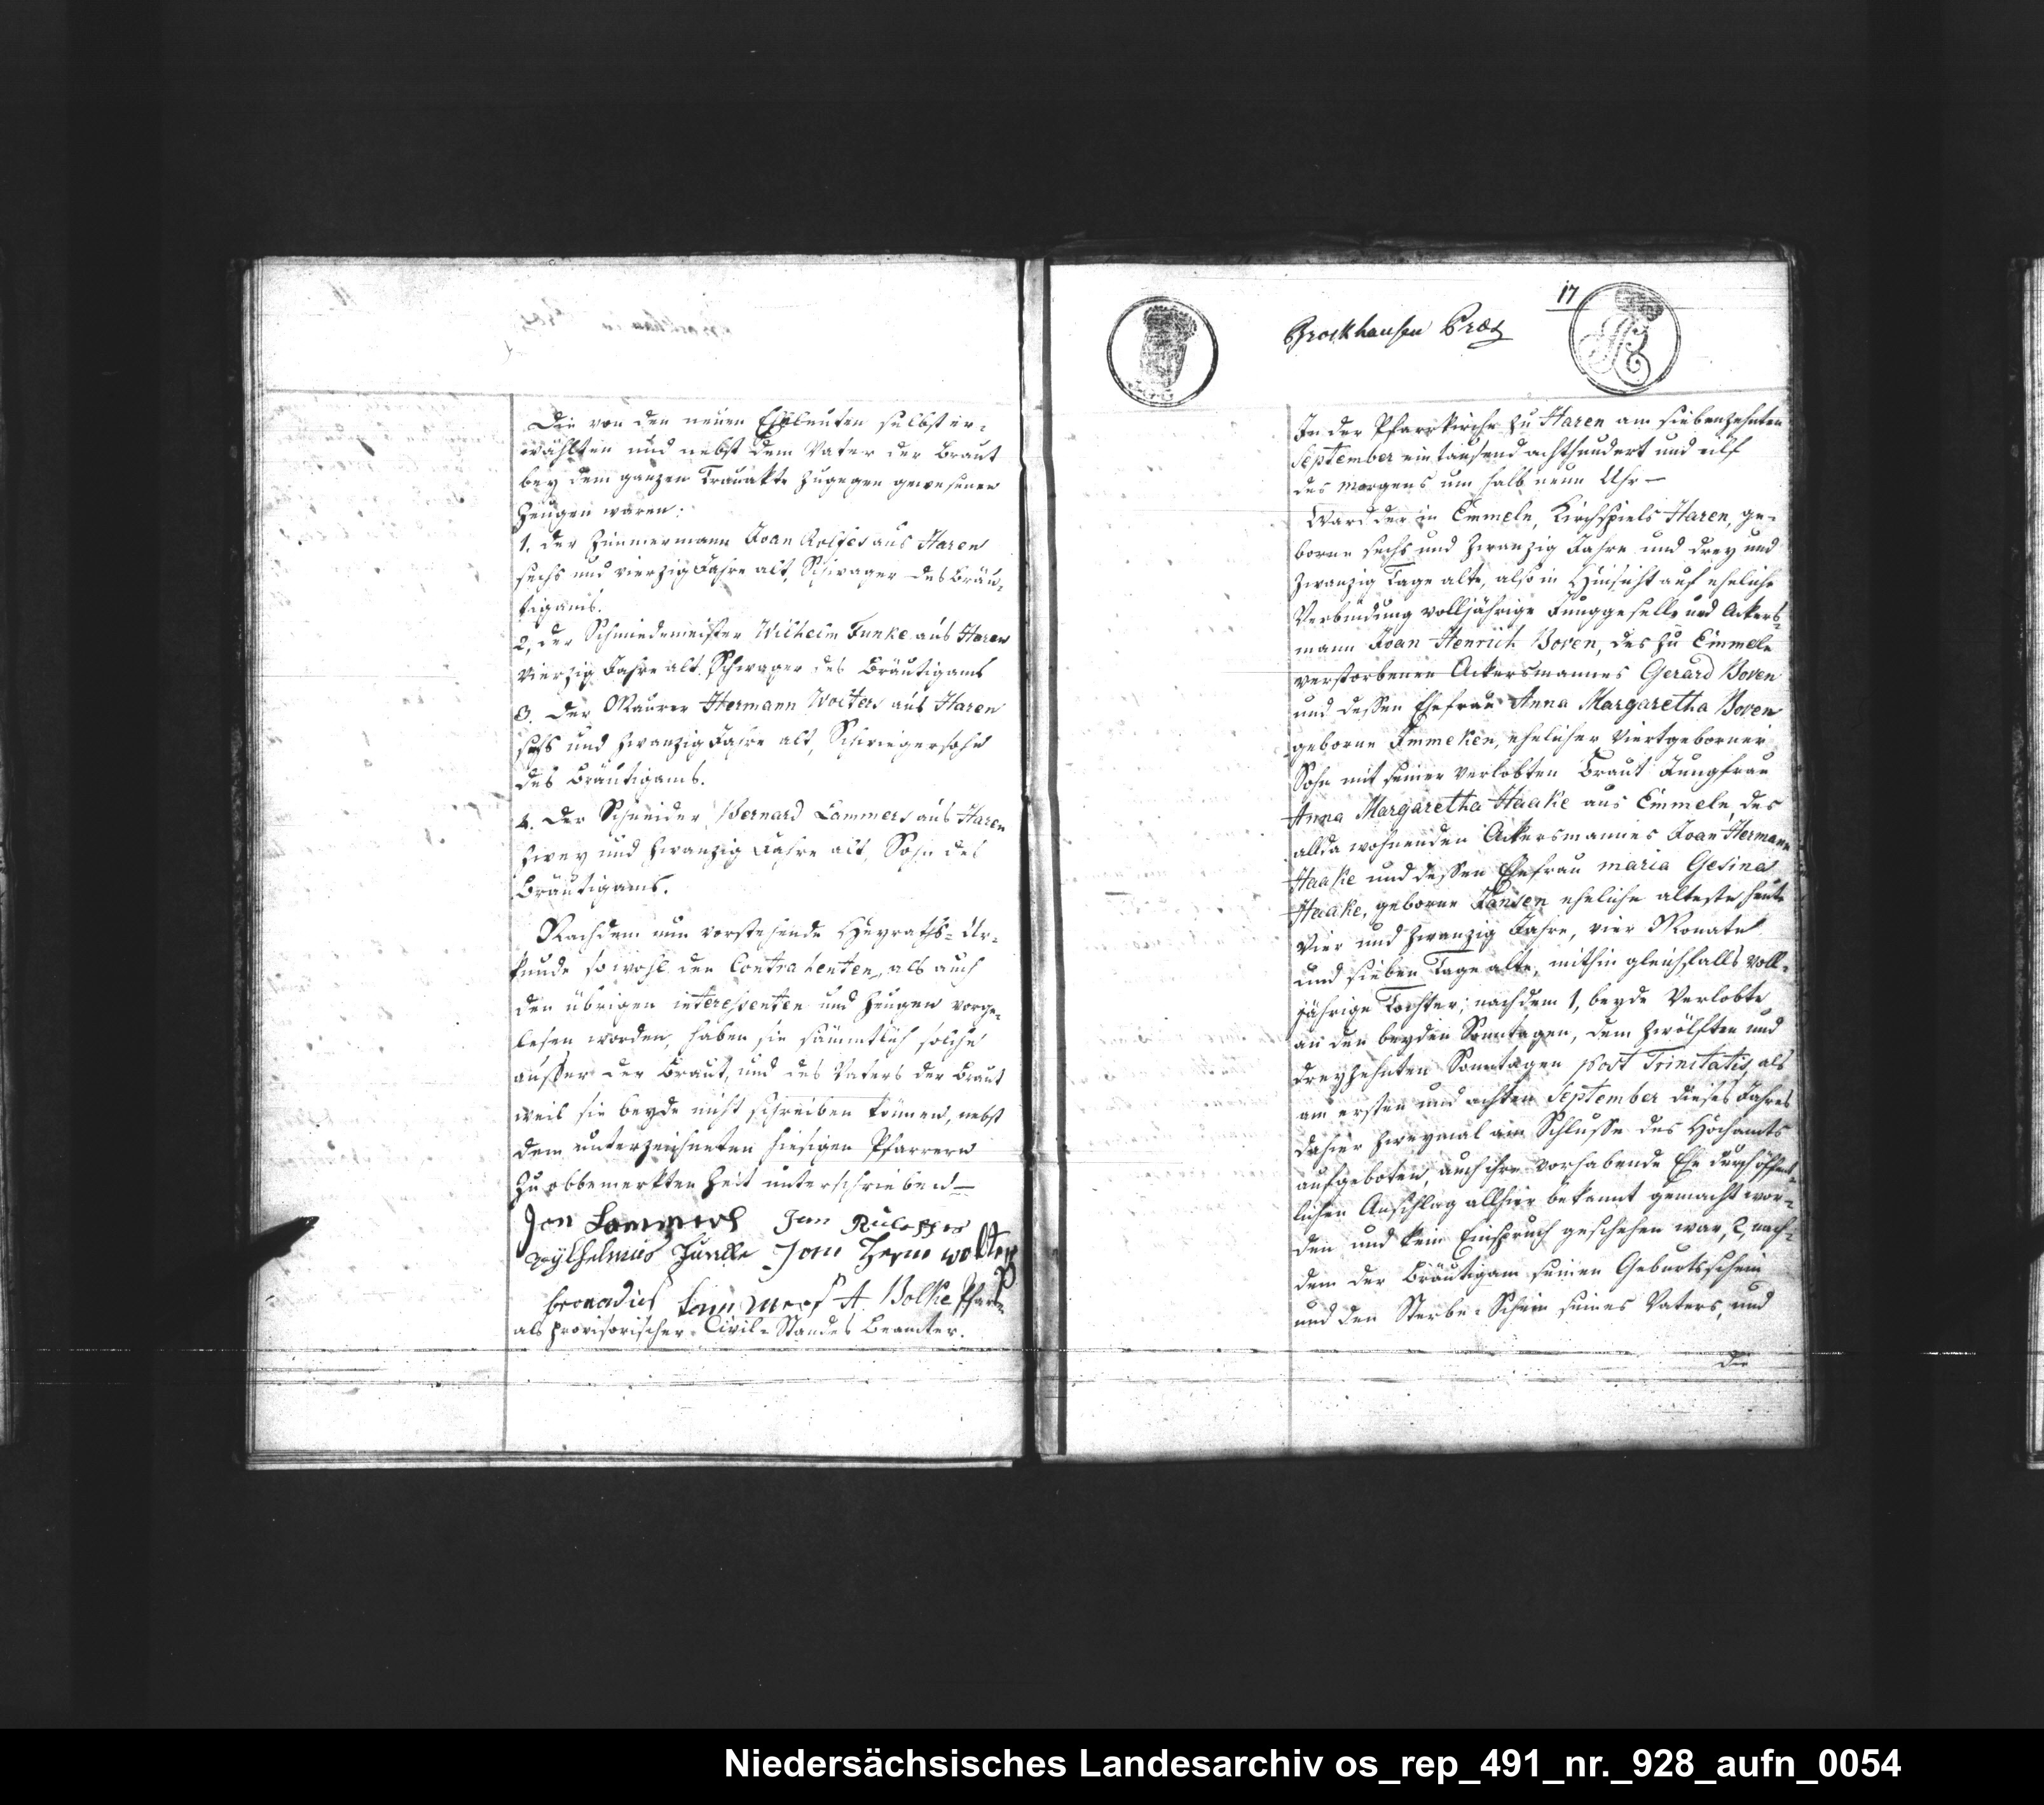 Die von den neuen Eheleuten selbst er-
wählten und nebst dem Vater der Braut
bey dem ganzen Trauakte zugegen gewesenen
Zeugen waren:
1. der Zimmermann Joan Rolfes aus Haren
sechs und vierzig Jahre alt, Schwager des Bräu-
tigams.
2, der Schmiedemeister Wilhelm Funke aus Haren
vierzig Jahre alt Schwager des Bräutigams
3. Der Maurer Hermann Wolters aus Haren
sechs und zwanzig Jahre alt, Schwiegersohn
des Bräutigams.
4. Der Schneider Bernard Lammers aus Haren
zwey und zwanzig Jahre alt, Sohn des
Bräutigams.
Nachdem nun vorstehende Heyraths-Ur-
kunde sowohl den Contrahenten, als auch
den übrigen interessenten und Zeugen vorge-
lesen worden, haben sie sämmtlich solche
ausser der Braut, und des Vaters der Braut
weil sie beyde nicht schreiben können, nebst
dem unterzeichneten hiesigen Pfarrern
zu obbemerkten Zeit unterschrieben —
Jan Lammers Jan
Funke Jan Herm Wolters
A. Bolke Pfarr
als provisorischer Civil-Standes Beamter.
17
Brockhausen Præs
In der Pfarrkirche zu Haren am siebenzehnten
September eintausend achthundert und eilf
des Morgens um halb neun Uhr —
Ward der in Emmeln, Kirchspiels Haren, ge-
borne sechs und zwanzig Jahre und drey und
zwanzig Tage alte, also in Hinsicht auf eheliche
Verbindung volljährige Junggeselle und Ackers-
mann Joan Henrich Boven, des zu Emmeln
verstorbenen Ackersmannes Gerard Boven
und dessen Ehefrau Anna Margaretha Boven
geborne Emmeken, ehelicher viertgeborner
Sohn mit seiner verlobten Braut Jungfrau
Anna Margaretha Haake aus Emmeln, des
allda wohnenden Ackersmannes Joan Hermann
Haake und dessen Ehefrau Maria Gesina
Haake, geborne Jansen eheliche älteste heute
vier und zwanzig Jahre, vier Monate
und sieben Tage alte, mithin gleichfalls voll-
jährige Tochter; nachdem 1, beyde Verlobte
an den beyden Sonntagen, dem zwölften und
dreyzehnten Sonntagen post Trinitatis, als
am ersten und achten September dieses Jahres
dahier zweymal am Schlusse des Hochamts
aufgeboten, auch ihre vorhabende Ehe durch öffent-
lichen Anschlag allhier bekannt gemacht wor-
den und kein Einspruch geschehen war, 2, nach-
dem der Bräutigam seinen Geburtsschein
und den Sterbe-Schein seines Vaters, und
die
Niedersächsisches Landesarchiv os_rep_491_nr._928_aufn_0054